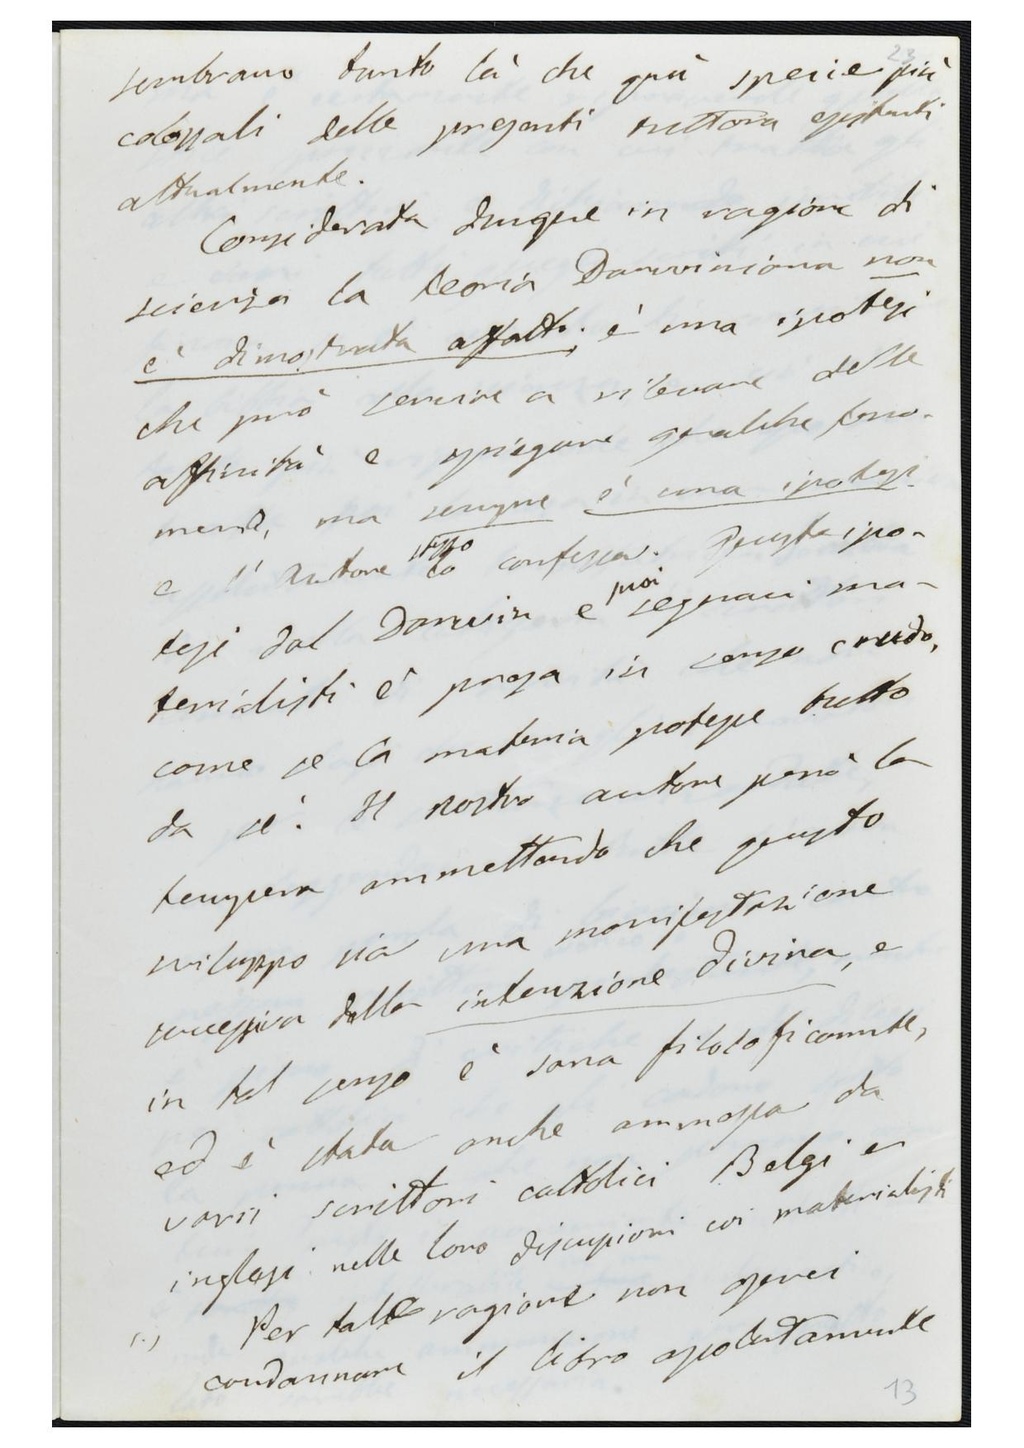 23
sembrano tanto là che quà specie più
colossali delle presenti tuttora esistenti
attualmente.
Considerata dunque in ragione di
scienza la teoria Darwiniana non
è dimostrata affatto; è una ipotesi
che può servire a rilevare delle
affinità e spiegare qualche feno-
meno, ma sempre è una ipotesi
e l'autore stesso lo confessa. Questa ipo-
tesi dal Darwin e poi seguaci ma-
terialisti è presa in senso crudo,
come se la materia potesse tutto
da sè. Il nostro autore però la
tempera ammettendo che questo
sviluppo sia una manifestazione
successiva della intenzione divina, e
in tal senso è sana filosoficamente,
ed è stata anche ammessa da
varii scrittori cattolici Belgi e
inglesi nelle loro discussioni coi materialisti
(.) Per tale ragione non oserei
condannare il libro assolutamente
13